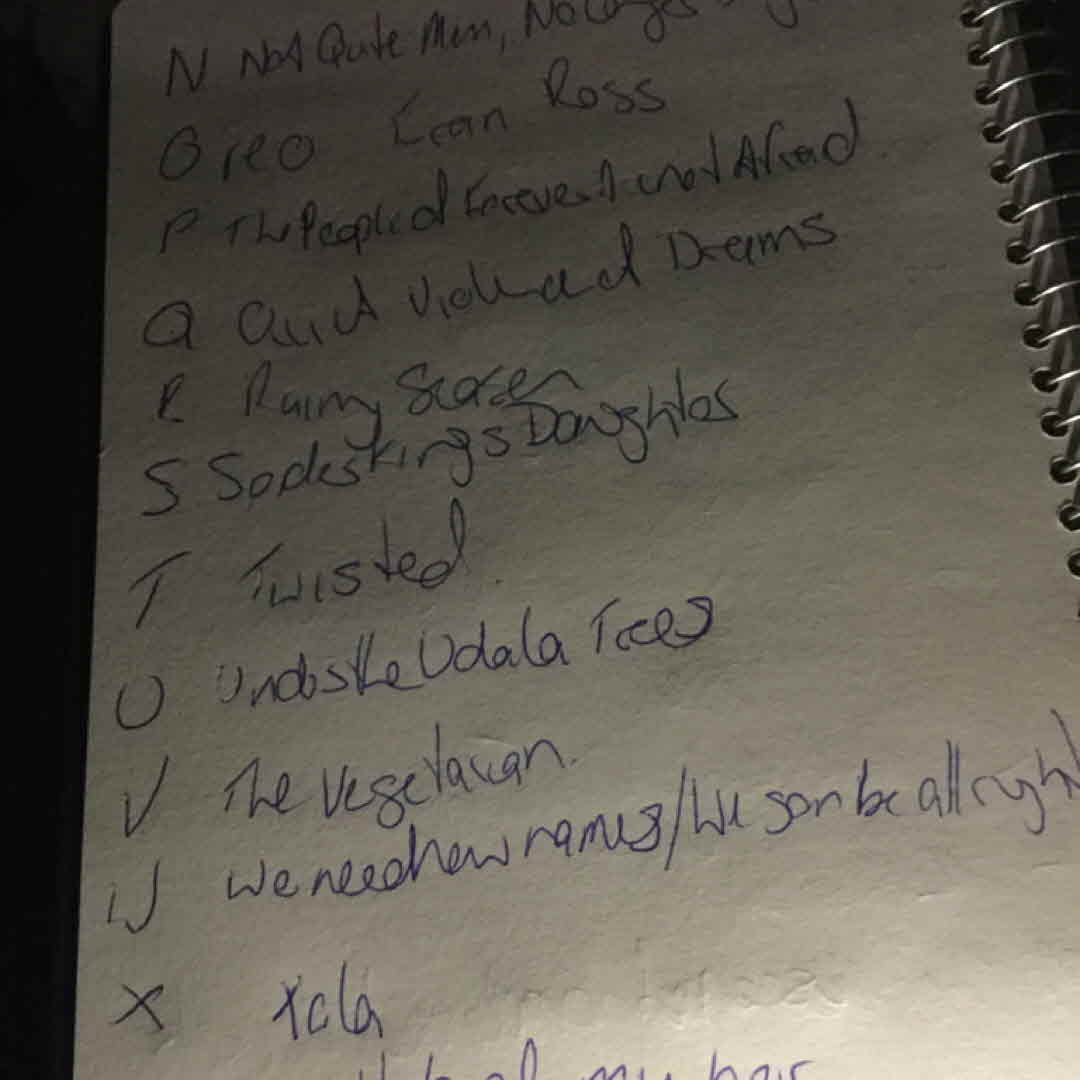 N Not Quite Men, No Longer
Oreo Fran Ross
P The People of Forever Are not Afraid
Q Quiet Violence of Dreams
R Rainy Season
S Spider Kings Daughter
T Twisted
U Under the Udala Trees
V The Vegetarian.
W We need new names/We gon be allright
X Xala
my hair